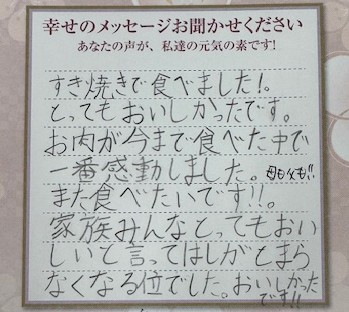 幸せのメッセージお聞かせください
あなたの声が、私達の元気の素です!
すき焼きで食べました!。
とってもおいしかったです。
お肉が今まで食べた中で
一番感動しました。母も父も!!
また食べたいです!!。
家族みんなとってもおい
しいと言ってはしがとまら
なくなる位でした。おいしかった
です!!